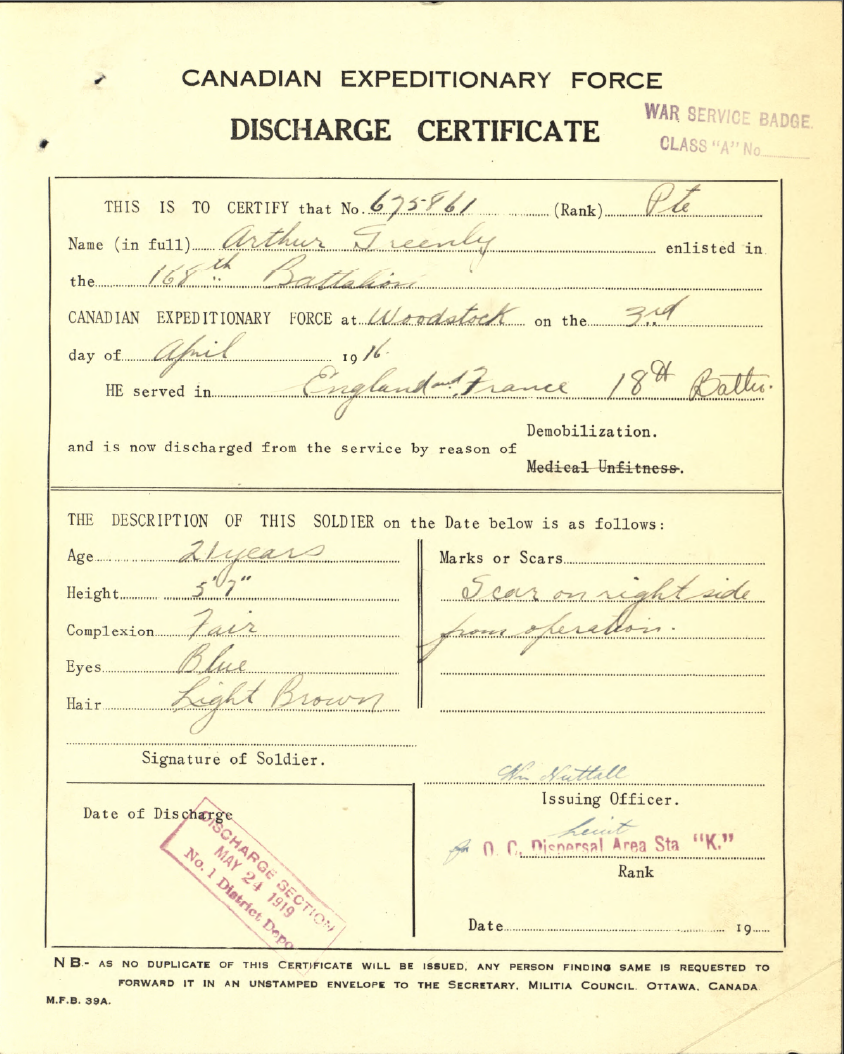 CANADIAN EXPEDITIONARY FORCE
DISCHARGE CERTIFICATE
WAR SERVICE BADGE.
CLASS "A" No
THIS IS TO CERTIFY that No. 675861 (Rank) Pte
Name (in full) Arthur Greenly enlisted in
the 168th Battalion
CANADIAN EXPEDITIONARY FORCE at Woodstock on the 3rd
day of April 1916.
HE served in England and France 18th Battn.
Demobilization.
and is now discharged from the service by reason of
Medical Unfitness.
THE DESCRIPTION OF THIS SOLDIER on the Date below is as follows:
Age 21 years
Height 5' 7"
Complexion Fair
Eyes Blue
Hair Light Brown
Marks or Scars
Scar on right side
from operation.
Signature of Soldier.
Wm Nuttall
Issuing Officer.
Lieut
for O. C. Dispersal Area Sta "K."
Rank
Date of Discharge
DISCHARGE SECTION
MAY 24 1919
No. 1 District Depo
Date 19
NB.- AS NO DUPLICATE OF THIS CERTIFICATE WILL BE ISSUED, ANY PERSON FINDING SAME IS REQUESTED TO
FORWARD IT IN AN UNSTAMPED ENVELOPE TO THE SECRETARY, MILITIA COUNCIL, OTTAWA, CANADA
M.F.B. 39A.